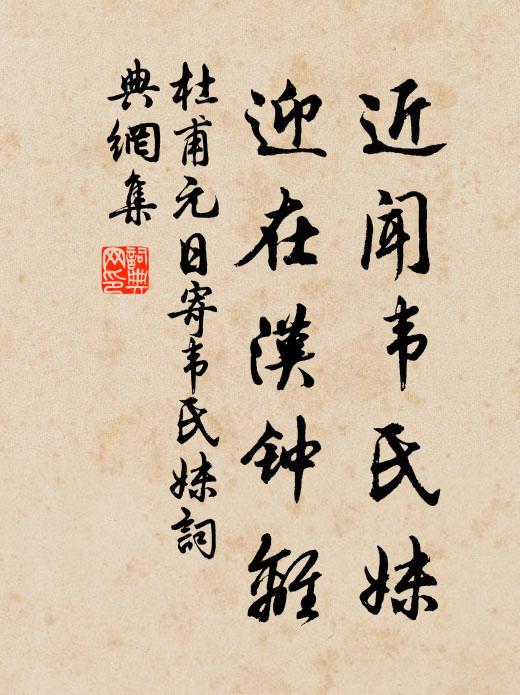 近闻韦氏妹
迎在漢钟離
杜甫元日寄韦氏妹詞
典網集
詞典
网印